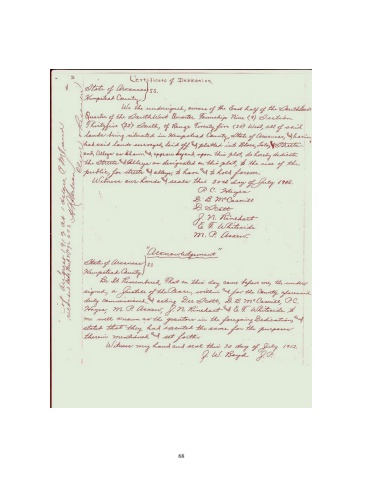 Certificate of Dedication
State of Arkansas
Hempstead County } SS.
We the undersigned, owners of the East half of the Southeast
Quarter of the Southwest Quarter Township Nine (9) Section
Thirty five (35) South, of Range twenty four (24) West, all of said
lands being situated in Hempstead County, State of Arkansas, & having
had said lands surveyed, laid off & platted into Blocks, Lots, & Streets
and Alleys as shown & appears upon this plat, do hereby dedicate
the Streets & Alleys as designated on this plat, to the use of the
public, for streets & alleys, to have & to hold forever.
Witness our hands & seals this 20th day of July 1912.
P. C. Hayes
D. B. McCaskill
D. Scott
J. N. Rinehart
E. F. Whiteside
M. P. Askew.
"Acknowledgement"
State of Arkansas
Hempstead County } SS
Be It Remembered, That on this day came before me, the under
signed, a Justice of the Peace, within & for the County aforesaid
duly commissioned & acting Dee Scott, D. B. McCaskill, P. C.
Hayes, M. P. Askew, J. N. Rinehart & E. F. Whiteside to
me well known as the grantors in the foregoing Dedication, and
stated that they had executed the same for the purposes
therein mentioned & set forth.
Witness my hand and seal this 20 day of July 1912.
J. W. Boyd J.P.
68